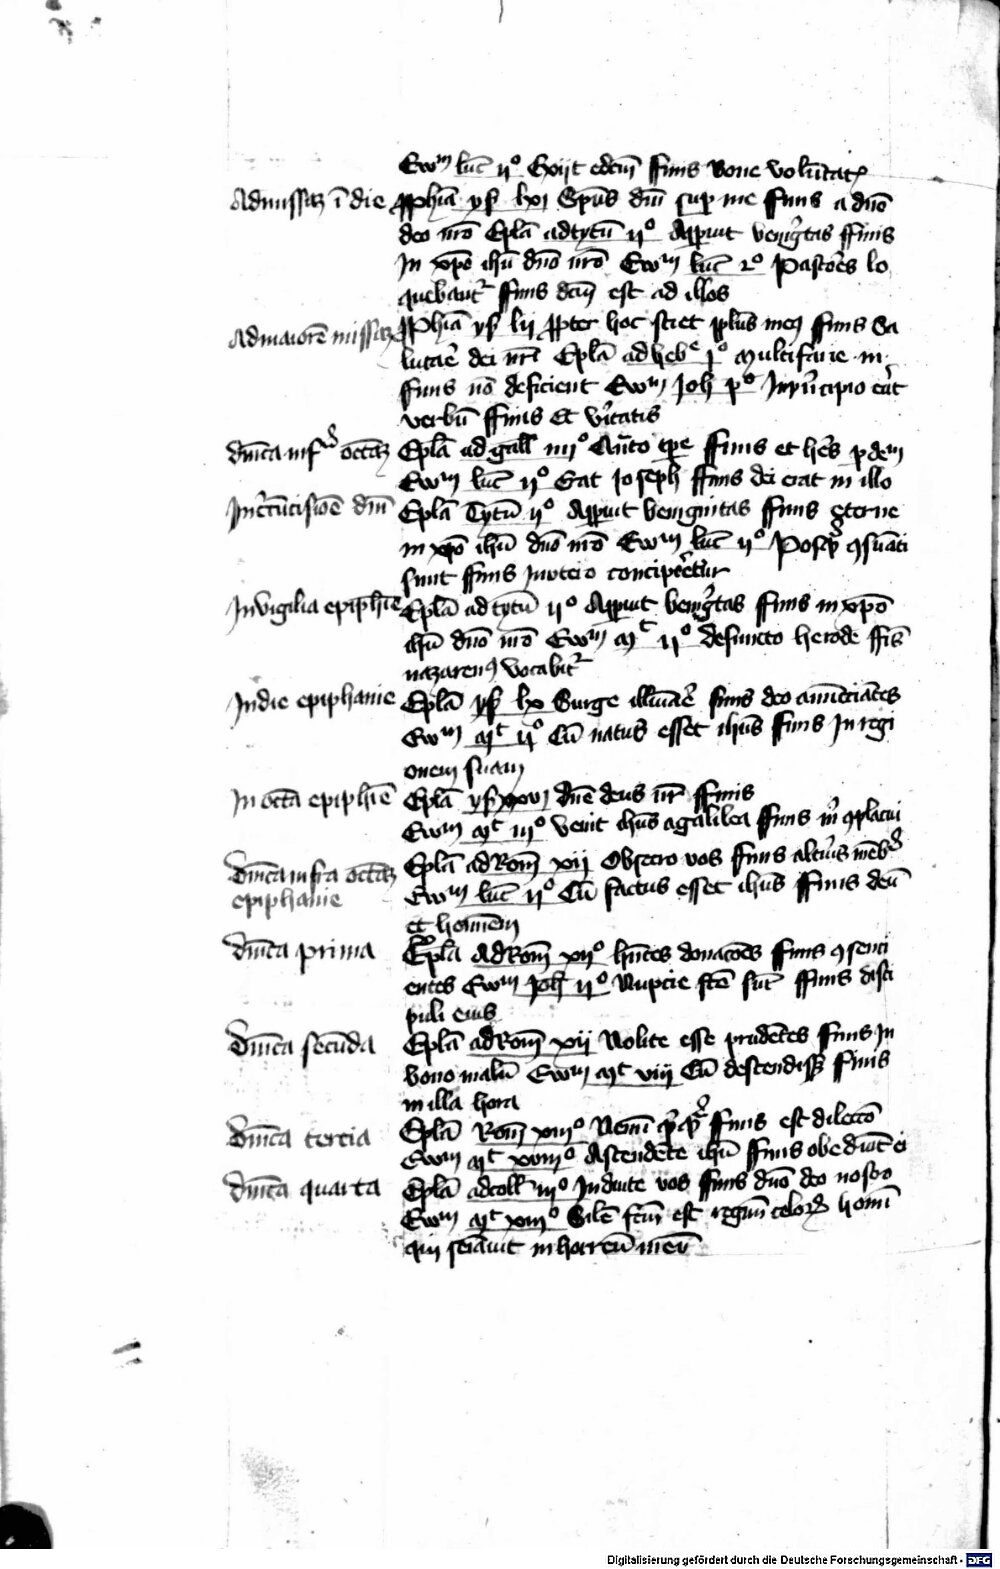 Ewm luc̄ ijº Exijt edcm̄ ffinis bone volūtatꝭ
Admissaꝫ ī die ꝓphīa ysa lxj Spūs dm̄i sup me ffinis a dnō
deo nr̄o Epl̄a ad tytū ijº Apparuit benigtas ffinis
In xp̄o ihū dnō nr̄o Ewm luc̄ 2º Pastores lo
quebantr ffinis dcm̄ est ad illos
Ad maiorē missaꝫ ꝓphīa ysa lij ꝓpter hoc sciet ppl̄us meꝰ ffinis Sa
lutarē dei nr̄i Epl̄a ad hebe jº Multifarie in
ffinis nō deficient Ewm Joh pº In pncipio erat
verbū ffinis Et vitatis
dn̄ica infra octaꝫ Epl̄a ad gall iiijº Quāto tpe ffinis et hēs p dem
Ewm luc̄ ijº Erat Joseph ffinis dei erat in illo
In circūcisiōe dn̄i Epl̄a Tytū ijº Apparuit benignitas ffinis eterne
in xp̄o ihū dnō nr̄o Ewm luc̄ ijº Postq̄ ꝯsūati
sunt ffinis In vtero conciperetur
In vigilia epiphīe Epl̄a ad tytū ijº Apparuit benigtas ffinis in xp̄o
ihū dnō nr̄o Ewm Mt ijº defuncto herode ffis
nazarenꝰ vocabitr
In die epiphanie Epl̄a ysa lx Surge illūarē ffinis deo anūciātes
Ewm Mt ijº Cū natus esset ihūs ffinis In regi
onem suam
In octa epiphīe Epl̄a ysa xxvj dn̄e deus nr̄ ffinis
Ewm Mt iijº venit ihūs a galilea ffinis m ꝯplacui
dn̄ica infra octaꝫ Epl̄a ad Rom̄ xij Obsecro vos ffinis altius mēbra
epiphanie Ewm luc̄ ijº Cū factus esset ihūs ffinis deū
et hominem
dn̄ica prima Epl̄a Ad Rom̄ xijº hn̄tes donacōes ffinis ꝯsenci
entes Ewm Joh ijº Nupcie fcē sūt ffinis disci
puli eius
dn̄ica secūda Epl̄a ad Rom̄ xij Nolite esse prudētes ffinis In
bono malū Ewm Mt viij Cū descendissꝫ ffinis
in illa hora
dn̄ica tercia Epl̄a Rom̄ xiijº Nem̄i ffinis est dilectō
Ewm Mt Ascendēte ihū ffinis obediūt ei
dn̄ica quarta Epl̄a ad coll iijº Induite vos ffinis dnō deo nostro
Ewm Mt xiijº Sil̄e fcm̄ est regnū celoꝝ homī
qui seīauit in horreū meū
Digitalisierung gefördert durch die Deutsche Forschungsgemeinschaft - DFG